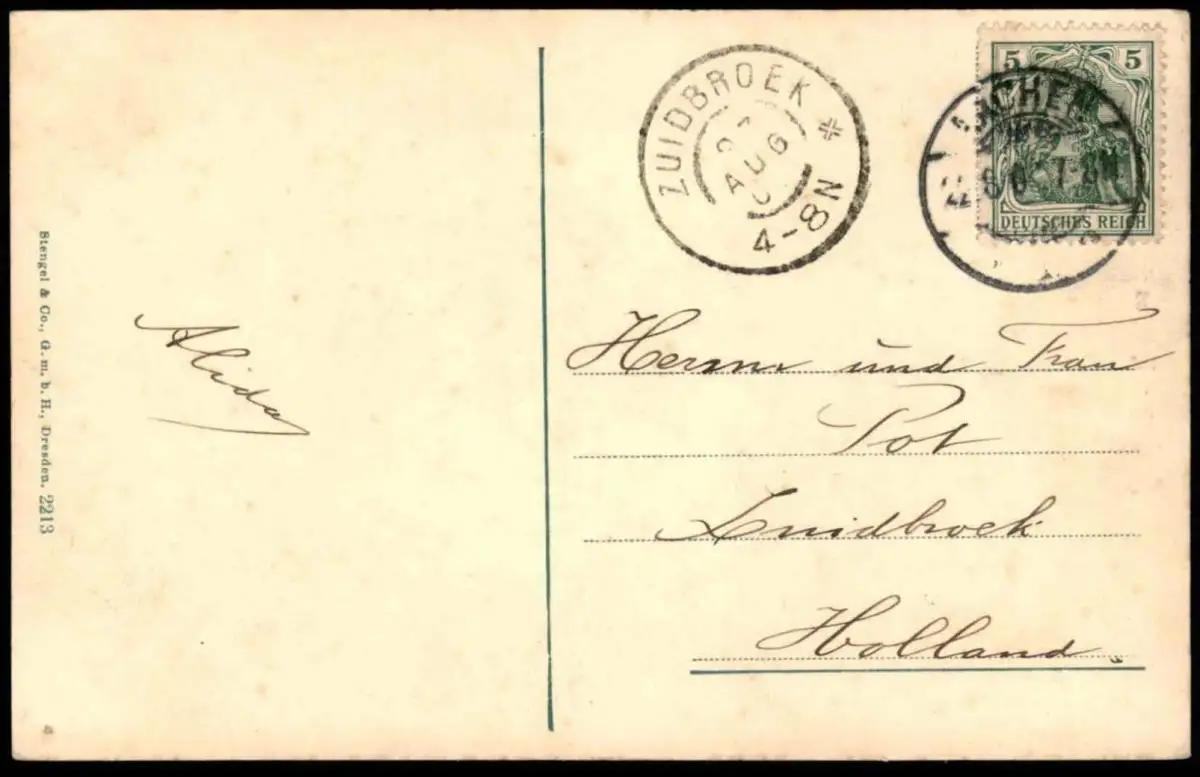 Stengel & Co., G. m. b. H., Dresden. 2213
Alida
ZUIDBROEK
AUG
4-8N
5 5
DEUTSCHES REICH
AACHEN
7-8N
Herrn und Frau
Pot
Zuidbroek
Holland